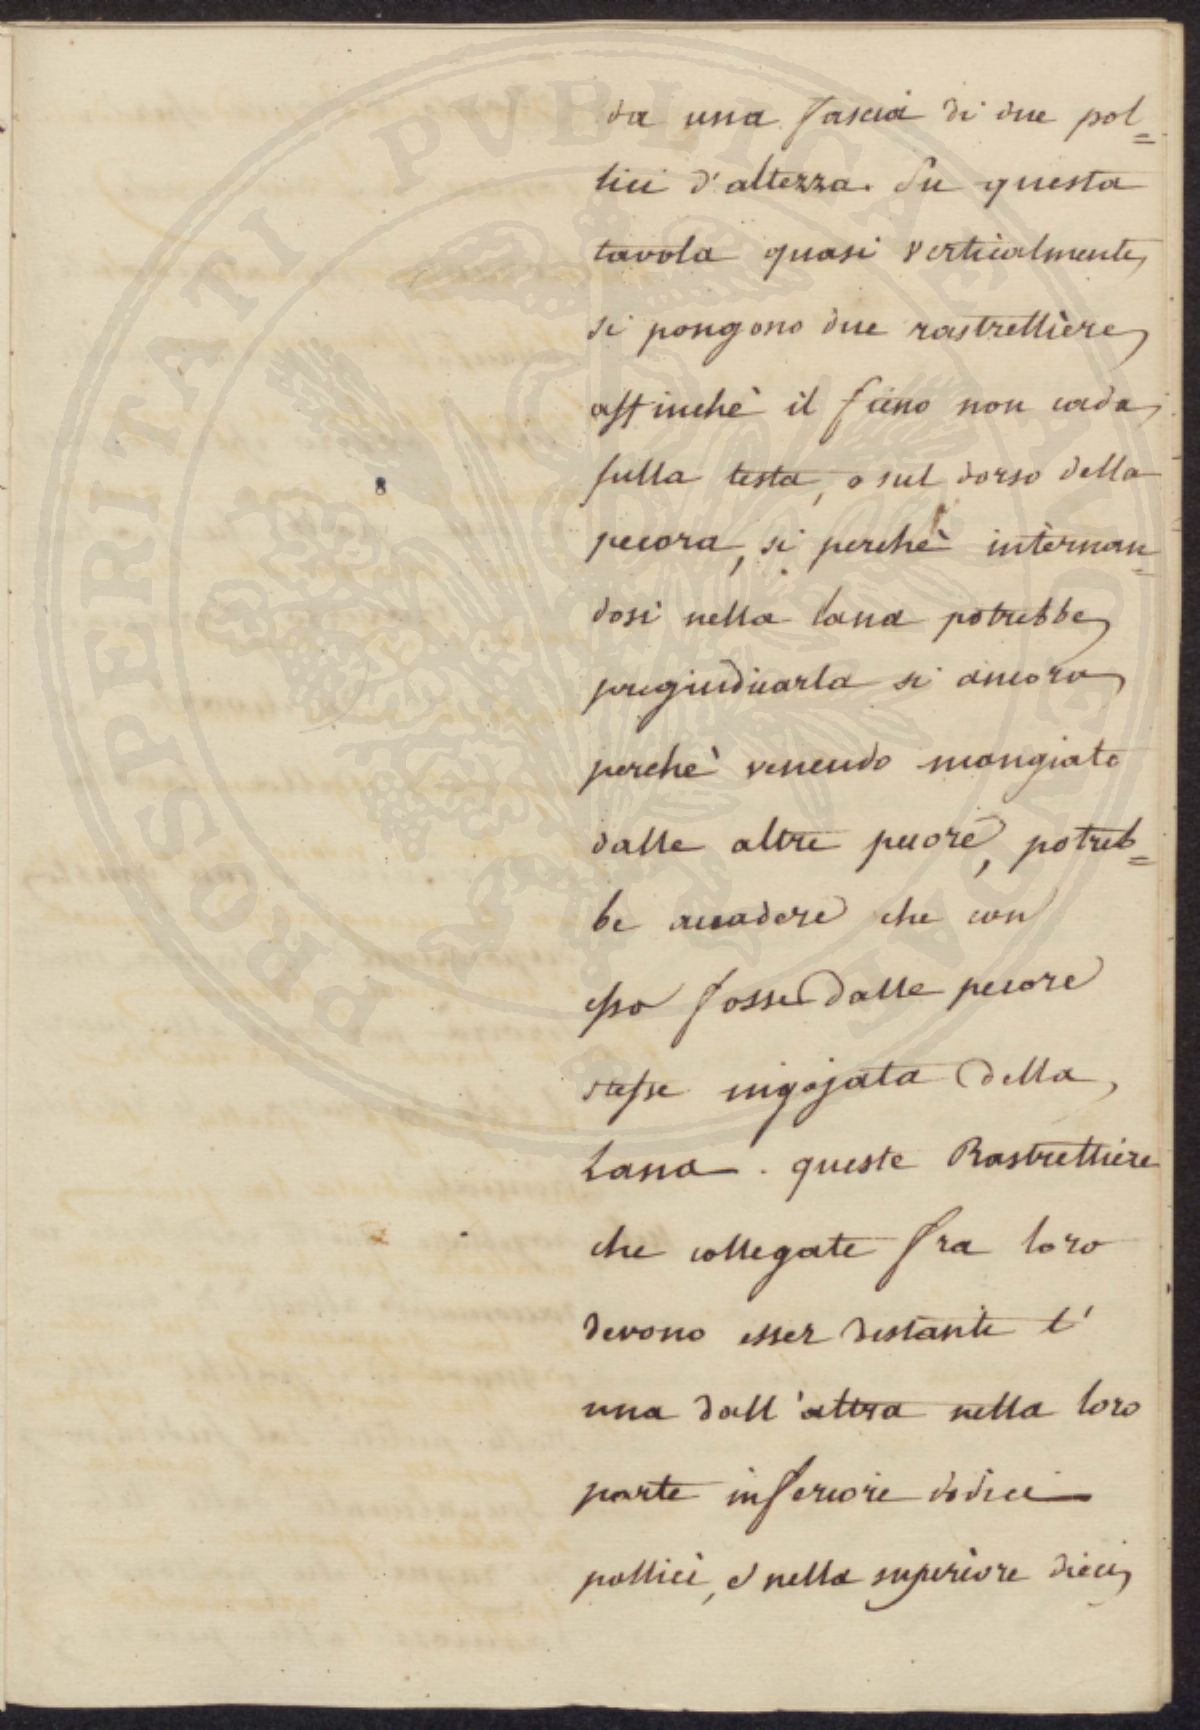 da una fascia di due pol=
lici d'altezza. Su questa
tavola quasi verticalmente
si pongono due rastrellière
affinchè il fieno non cada
sulla testa, o sul dorso della
pecora, si perchè internan=
dosi nella lana potrebbe
pregiudicarla si ancora
perchè venendo mangiato
dalle altre pecore, potreb=
be accadere che con
esso fosse dalle pecore
stesse ingojata della
Lana. queste Rastrelliere
che collegate fra loro
devono esser distanti l'
una dall'altra nella loro
parte inferiore dodici
pollici, e nella superiore dieci
PROSPERITATI PVBLICAE AVGENDAE